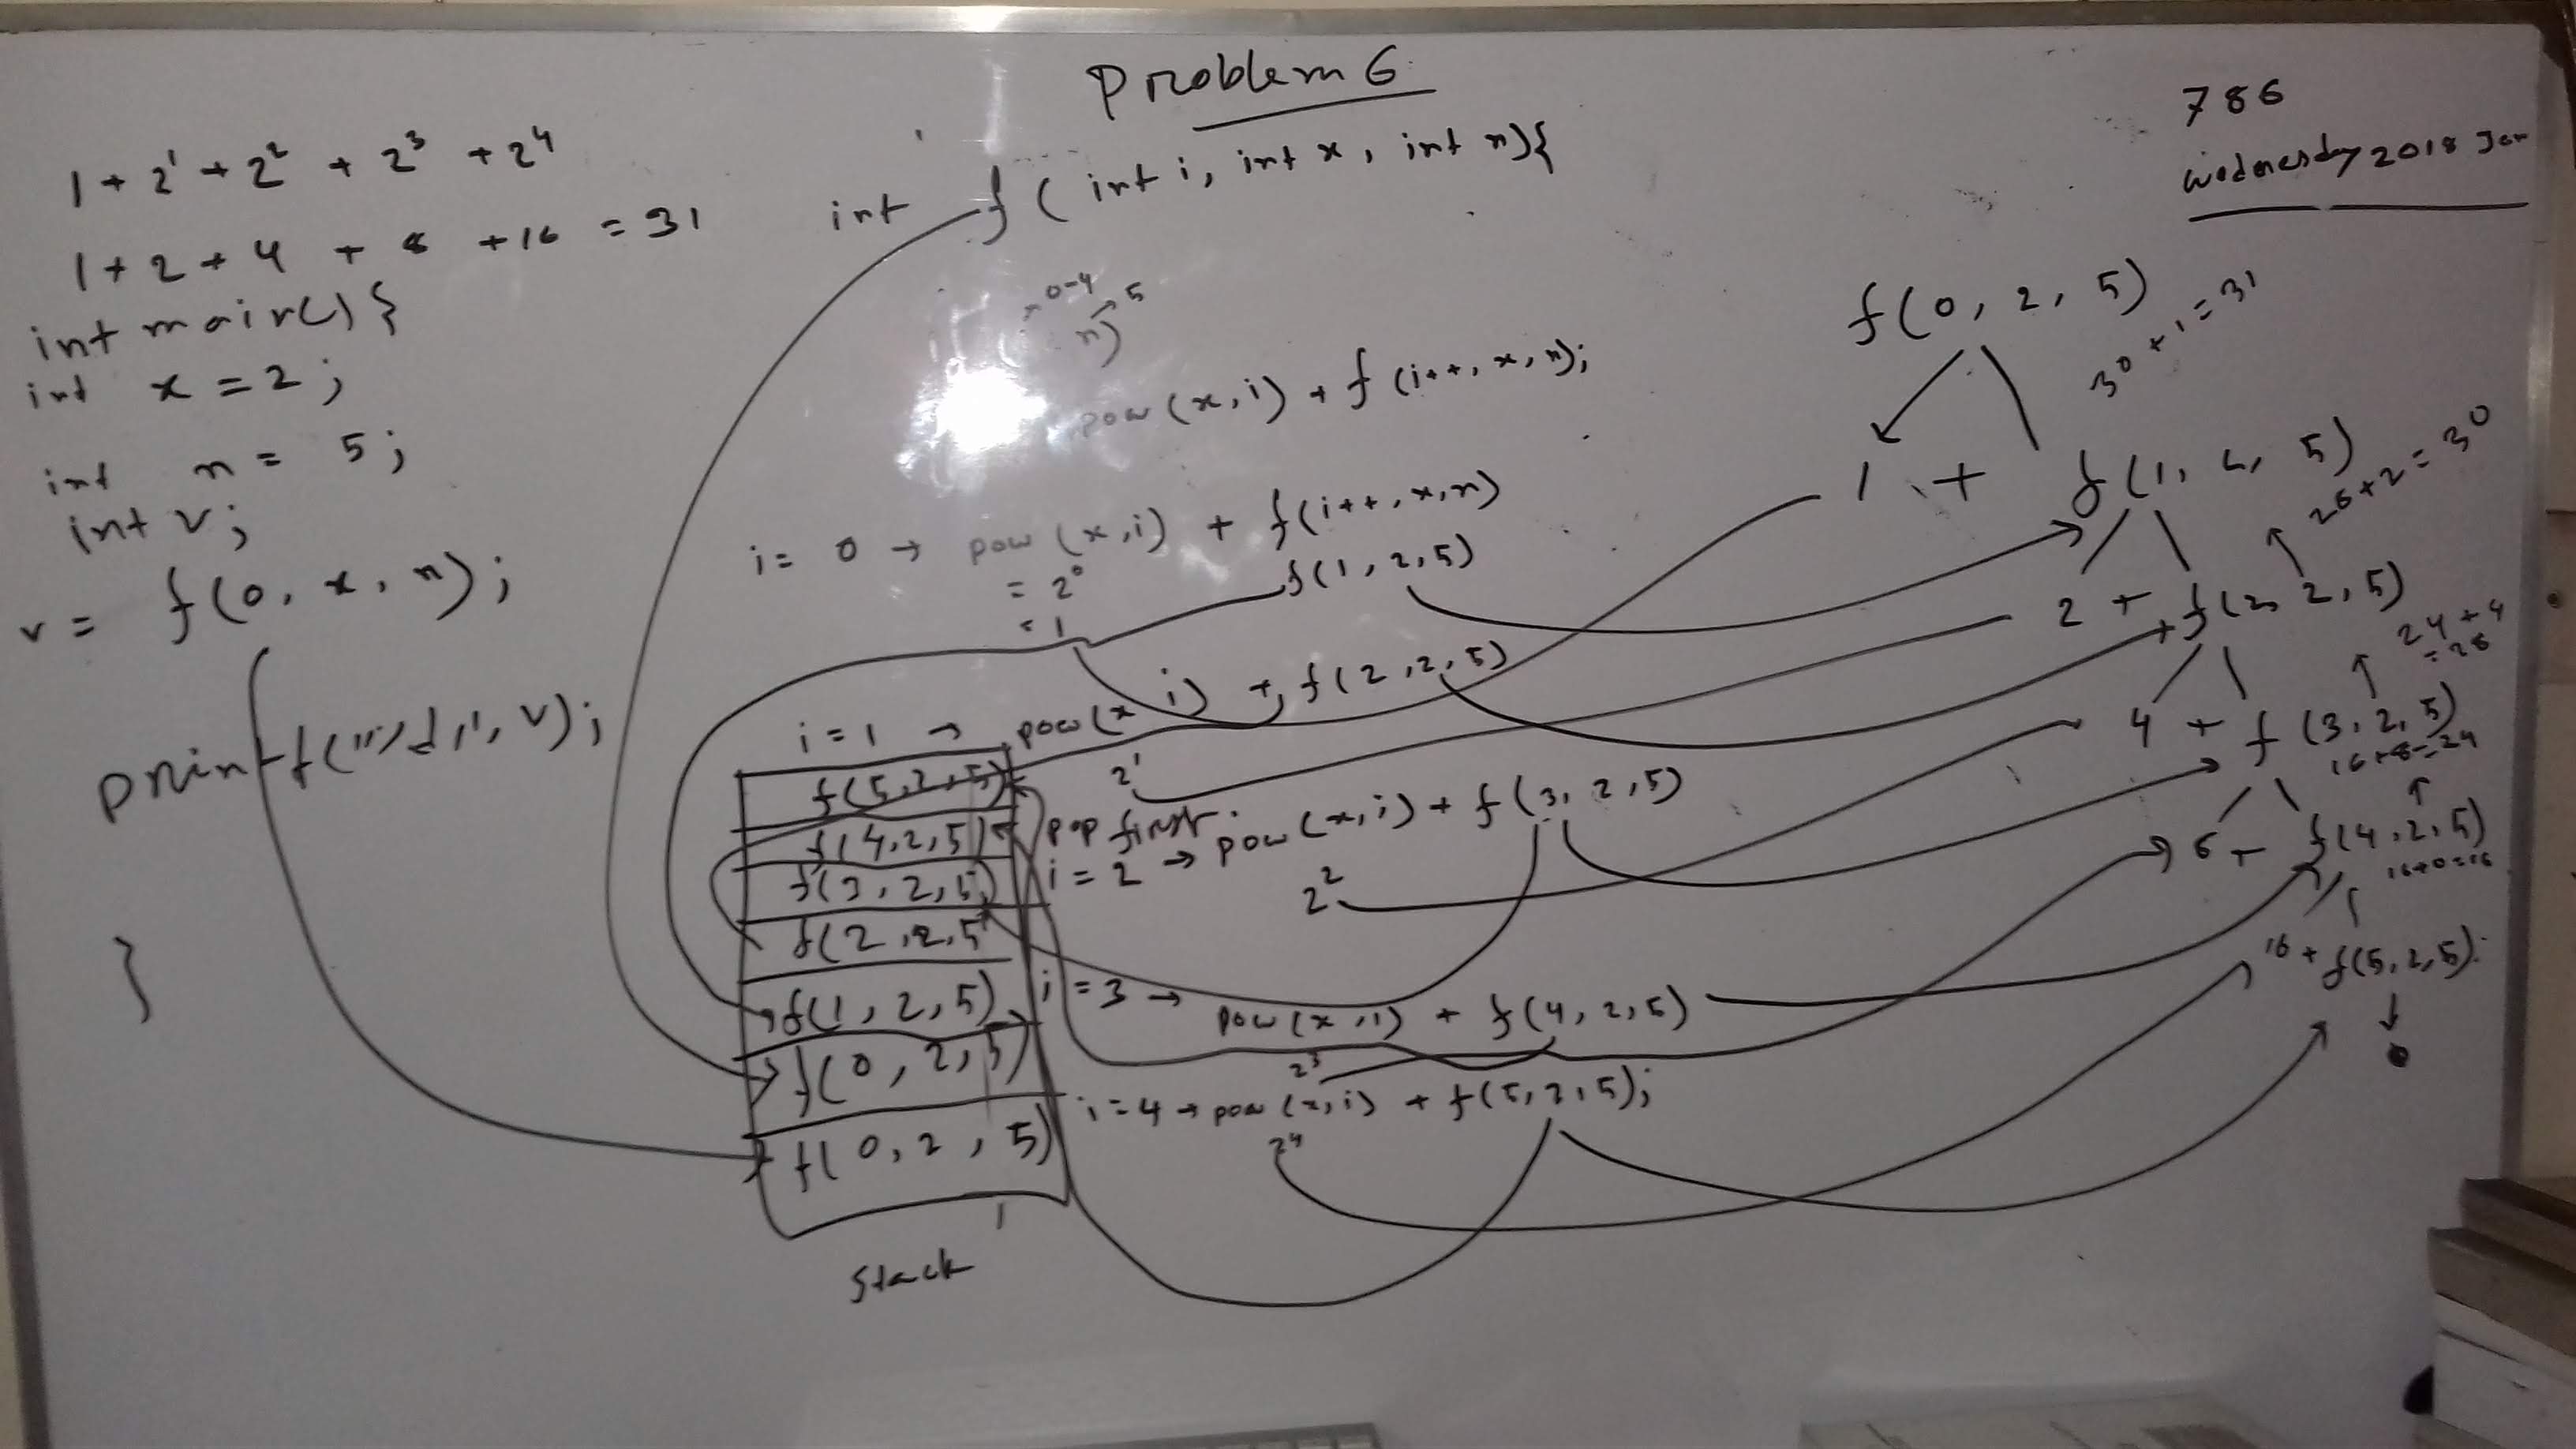 Problem 6
786
Wednesday 2018 Jan
1 + 2^1 + 2^2 + 2^3 + 2^4
1 + 2 + 4 + 8 + 16 = 31
int main() {
int x = 2;
int n = 5;
int v;
v = f(0, x, n);
printf("%d", v);
}
int f(int i, int x, int n){
0-4
n) 5
pow(x,i) + f(i++, x, n);
i = 0 → pow(x,i) + f(i++,x,n)
= 2^0
f(1,2,5)
= 1
i = 1 → pow(x i) + f(2,2,5)
2^1
pop first.
i = 2 → pow(x,i) + f(3,2,5)
2^2
i = 3 → pow(x,i) + f(4,2,5)
2^3
i = 4 → pow(x,i) + f(5,2,5);
2^4
f(5,2,5)
f(4,2,5)
f(3,2,5)
f(2,2,5
f(1,2,5)
f(0,2,5)
f(0,2,5)
Stack
f(0, 2, 5)
30 + 1 = 31
1 + f(1, 2, 5)
28 + 2 = 30
2 + f(2, 2, 5)
24 + 4
= 28
4 + f(3, 2, 5)
16+8=24
8 + f(4,2,5)
16+0=16
16 + f(5,2,5)
0